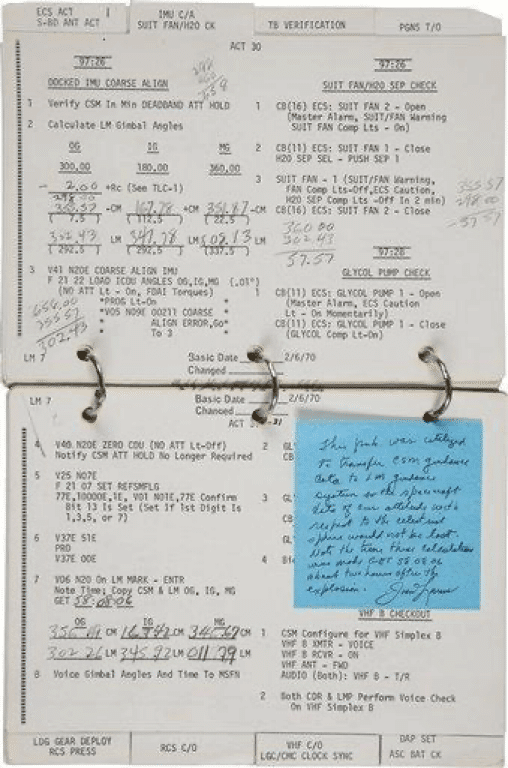 ECS ACT
S-BD ANT ACT
IMU C/A
SUIT FAN/H2O CK
TB VERIFICATION
PGNS T/O
ACT 30
97:26
DOCKED IMU COARSE ALIGN
1 Verify CSM In Min DEADBAND ATT HOLD
2 Calculate LM Gimbal Angles
OG IG MG
300.00 180.00 360.00
- 2.00 +Rc (See TLC-1)
298.00
355.57 -CM 167.78 +CM 351.87 -CM
(7.5) (112.5) (22.5)
302.43 LM 347.78 LM 008.13 LM
(292.5) (292.5) (337.5)
3 V41 N20E COARSE ALIGN IMU
F 21 22 LOAD ICDU ANGLES OG,IG,MG (.01°)
(NO ATT Lt - On, FDAI Torques)
*PROG Lt-On *
*V05 N09E 00211 COARSE *
* ALIGN ERROR,Go*
* To 3 *
658.00
355.57
302.43
97:26
SUIT FAN/H2O SEP CHECK
1 CB(16) ECS: SUIT FAN 2 - Open
(Master Alarm, SUIT/FAN Warning
SUIT FAN Comp Lts - On)
2 CB(11) ECS: SUIT FAN 1 - Close
H2O SEP SEL - PUSH SEP 1
3 SUIT FAN - 1 (SUIT/FAN Warning,
FAN Comp Lts-Off,ECS Caution,
H2O SEP Comp Lts -Off In 2 min)
CB(16) ECS: SUIT FAN 2 - Close
355.57
298.00
57.57
360 00
302.43
57.57
97:28
GLYCOL PUMP CHECK
1 CB(11) ECS: GLYCOL PUMP 1 - Open
(Master Alarm, ECS Caution
Lt - On Momentarily)
CB(11) ECS: GLYCOL PUMP 1 - Close
(GLYCOL Comp Lt-On)
LM 7
Basic Date 2/6/70
Changed
LM 7
Basic Date 2/6/70
Changed
ACT
4 V40 N20E ZERO CDU (NO ATT Lt-Off)
Notify CSM ATT HOLD No Longer Required
5 V25 N07E
F 21 07 SET REFSMFLG
77E,10000E,1E, V01 N01E,77E Confirm
Bit 13 Is Set (Set If 1st Digit Is
1,3,5, or 7)
6 V37E 51E
PRO
V37E 00E
7 V06 N20 On LM MARK - ENTR
Note Time; Copy CSM & LM OG, IG, MG
GET 58:08:06
OG IG MG
CM CM CM
302 26 LM 345 92 LM 011 79 LM
8 Voice Gimbal Angles And Time To MSFN
2 GL
CB
3 GL
CB
GL
CB
4
This page was utilized
to transfer CSM guidance
data to LM guidance
system so the spacecraft
data of our attitude with
respect to the celestial
sphere would not be lost.
Note the time these calculations
were made GET 58 08 06
about two hours after the
explosion. Jim Lovell
VHF B CHECKOUT
1 CSM Configure for VHF Simplex B
VHF B XMTR - VOICE
VHF B RCVR - ON
VHF ANT - FWD
AUDIO (Both): VHF B - T/R
2 Both CDR & LMP Perform Voice Check
On VHF Simplex B
LDG GEAR DEPLOY
RCS PRESS
RCS C/O
VHF C/O
LGC/CMC CLOCK SYNC
DAP SET
ASC BAT CK